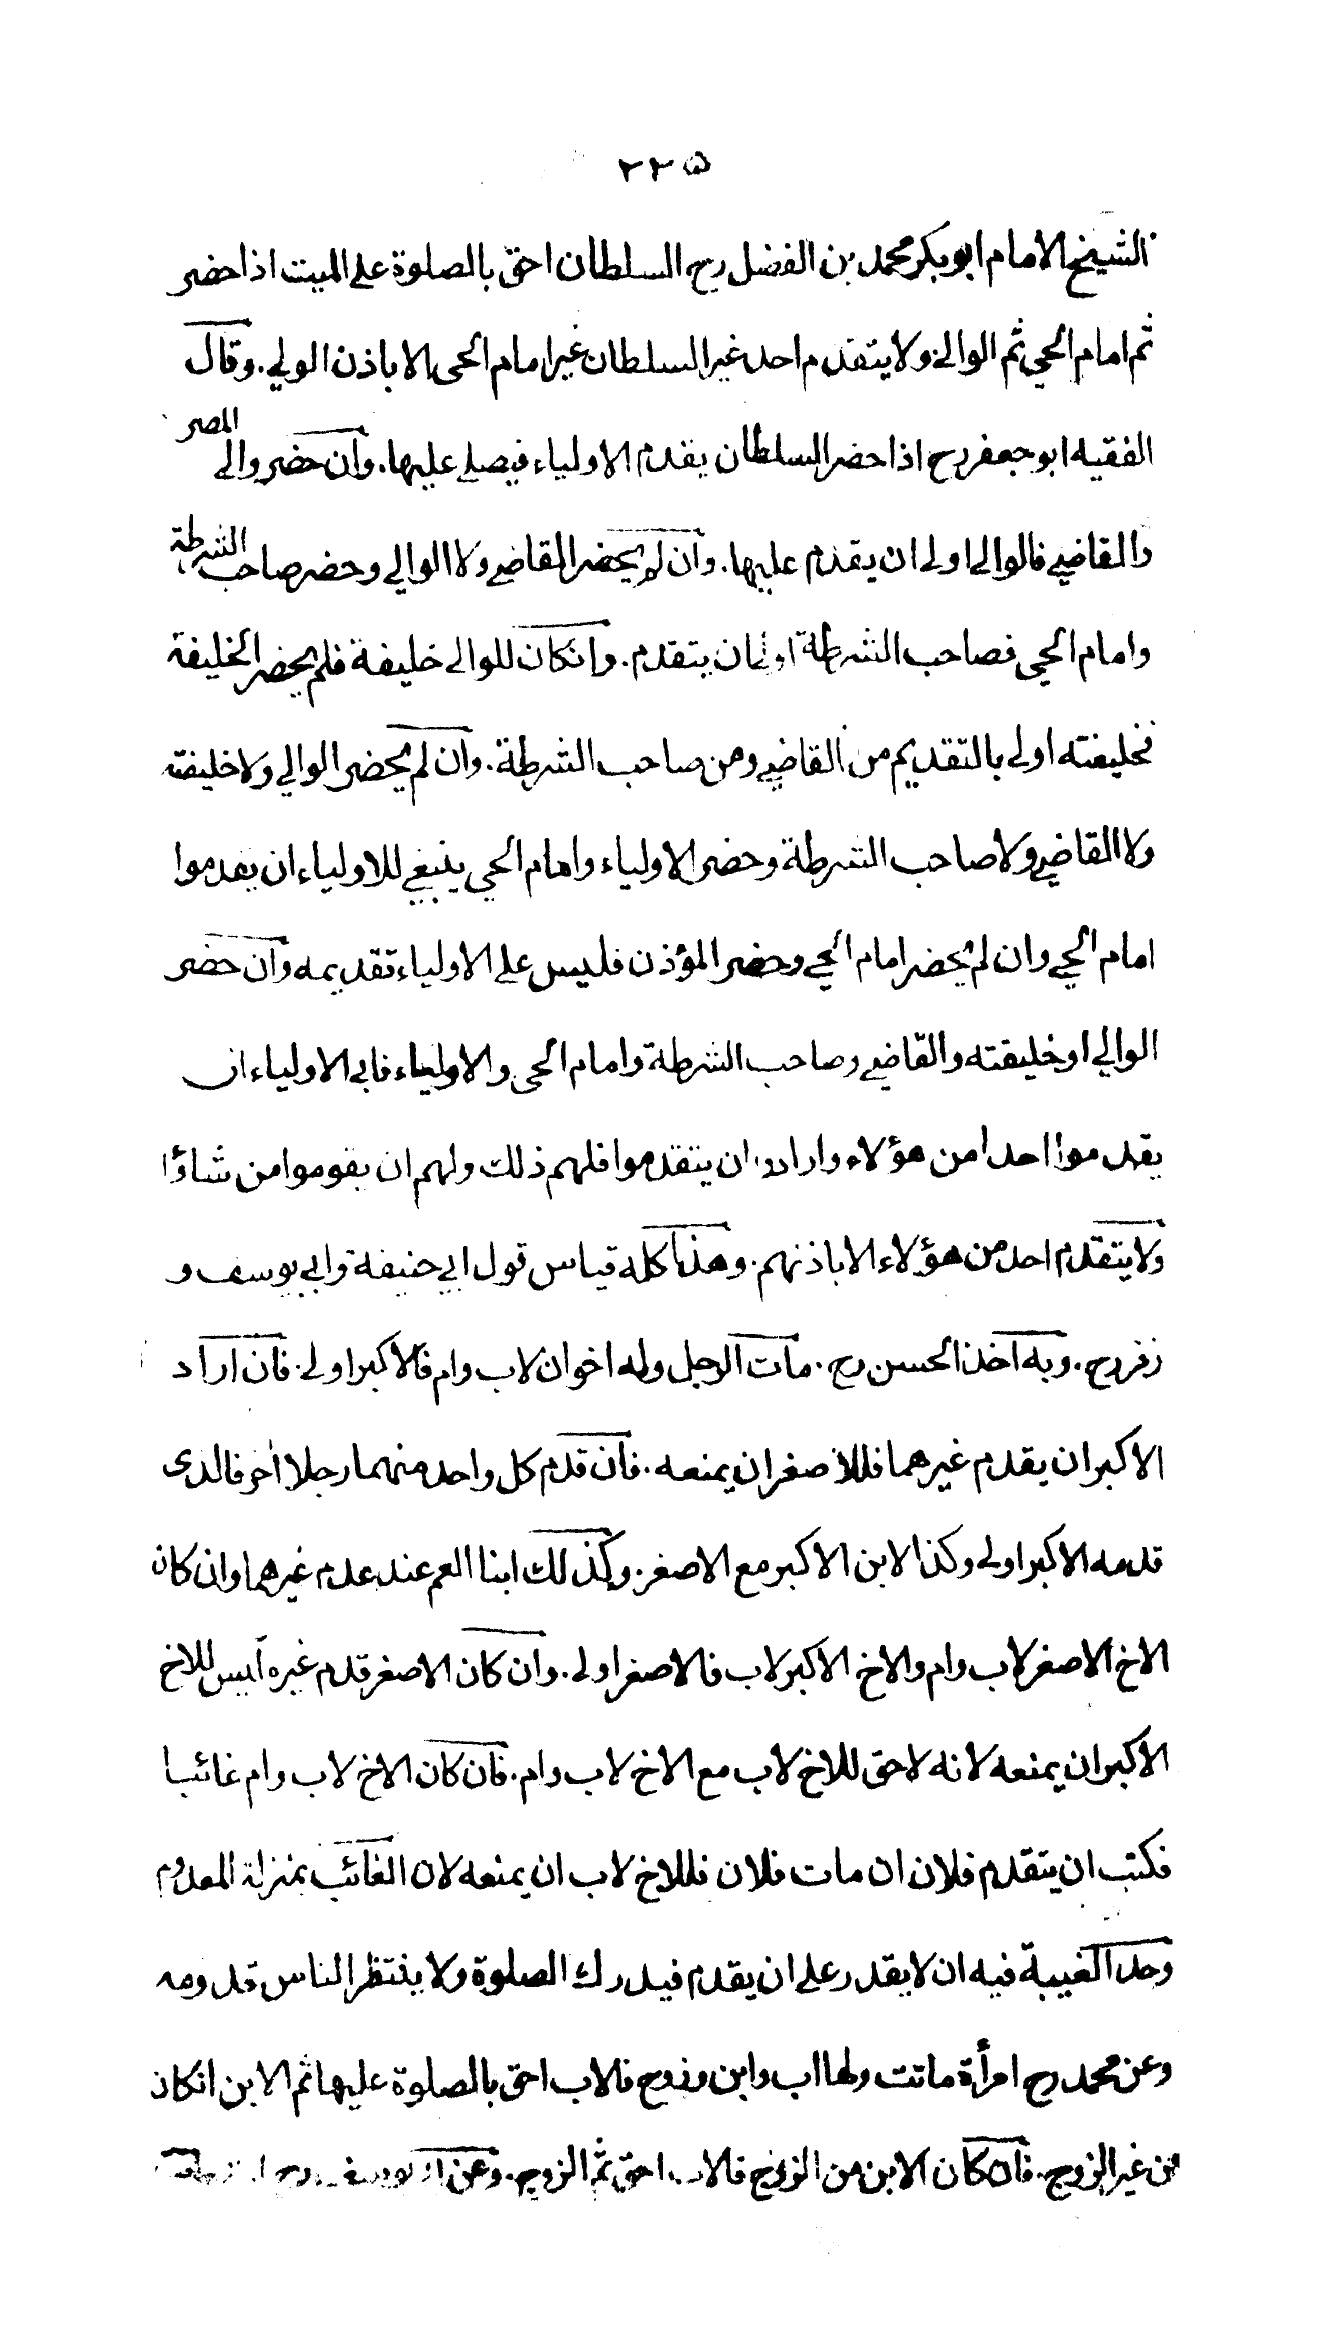 ٢٢٥
الشيخ الامام ابو بكر محمد بن الفضل رح السلطان احق بالصلوة على الميت اذا حضر
ثم امام الحي ثم الوالي ولا يتقدم احد غير السلطان غير امام الحي الا باذن الولي. وقال
الفقيه ابو جعفر رح اذا حضر السلطان يقدم الاولياء فيصلي عليها. وان حضر والي المصر
والقاضي فالوالي اولى ان يقدم عليها. وان لم يحضر القاضي ولا الوالي وحضر صاحب الشرطة
وامام الحي فصاحب الشرطة اولى ان يتقدم. وانكان للوالي خليفة فلم يحضر الخليفة
فخليفته اولى بالتقديم من القاضي ومن صاحب الشرطة. وان لم يحضر الوالي ولا خليفته
ولا القاضي ولا صاحب الشرطة وحضر الاولياء وامام الحي ينبغي للاولياء ان يقدموا
امام الحي وان لم يحضر امام الحي وحضر المؤذن فليس على الاولياء تقديمه وان حضر
الوالي او خليفته والقاضي وصاحب الشرطة وامام الحي والاولياء فابى الاولياء ان
يقدموا احدا من هؤلاء وارادوا ان يتقدموا فلهم ذلك ولهم ان يقوموا من شاؤا
ولا يتقدم احد من هؤلاء الا باذنهم. وهذا كله قياس قول ابي حنيفة وابي يوسف و
زفر رح. وبه اخذ الحسن رح. مات الرجل وله اخوان لاب وام فالاكبر اولى. فان اراد
الاكبر ان يقدم غيرهما فللاصغر ان يمنعه. فان قدم كل واحد منهما رجلا اخر فالذى
قدمه الاكبر اولى وكذا الابن الاكبر مع الاصغر. وكذلك ابنا العم عند عدم غيرهما وان كان
الاخ الاصغر لاب وام والاخ الاكبر لاب فالاصغر اولى. وان كان الاصغر قدم غيره ليس للاخ
الاكبر ان يمنعه لانه لا حق للاخ لاب مع الاخ لاب وام. فان كان الاخ لاب وام غائبا
فكتب ان يتقدم فلان ان مات فلان فللاخ لاب ان يمنعه لان الغائب بمنزلة المعدوم
وحد الغيبة فيه ان لا يقدر على ان يقدم فيدرك الصلوة ولا ينتظر الناس قدومه
وعن محمد رح امرأة ماتت ولها اب وابن وزوج فالاب احق بالصلوة عليها ثم الابن انكان
من غير الزوج. فان كان الابن من الزوج فالاب احق ثم الزوج. وعن ابي يوسف رح